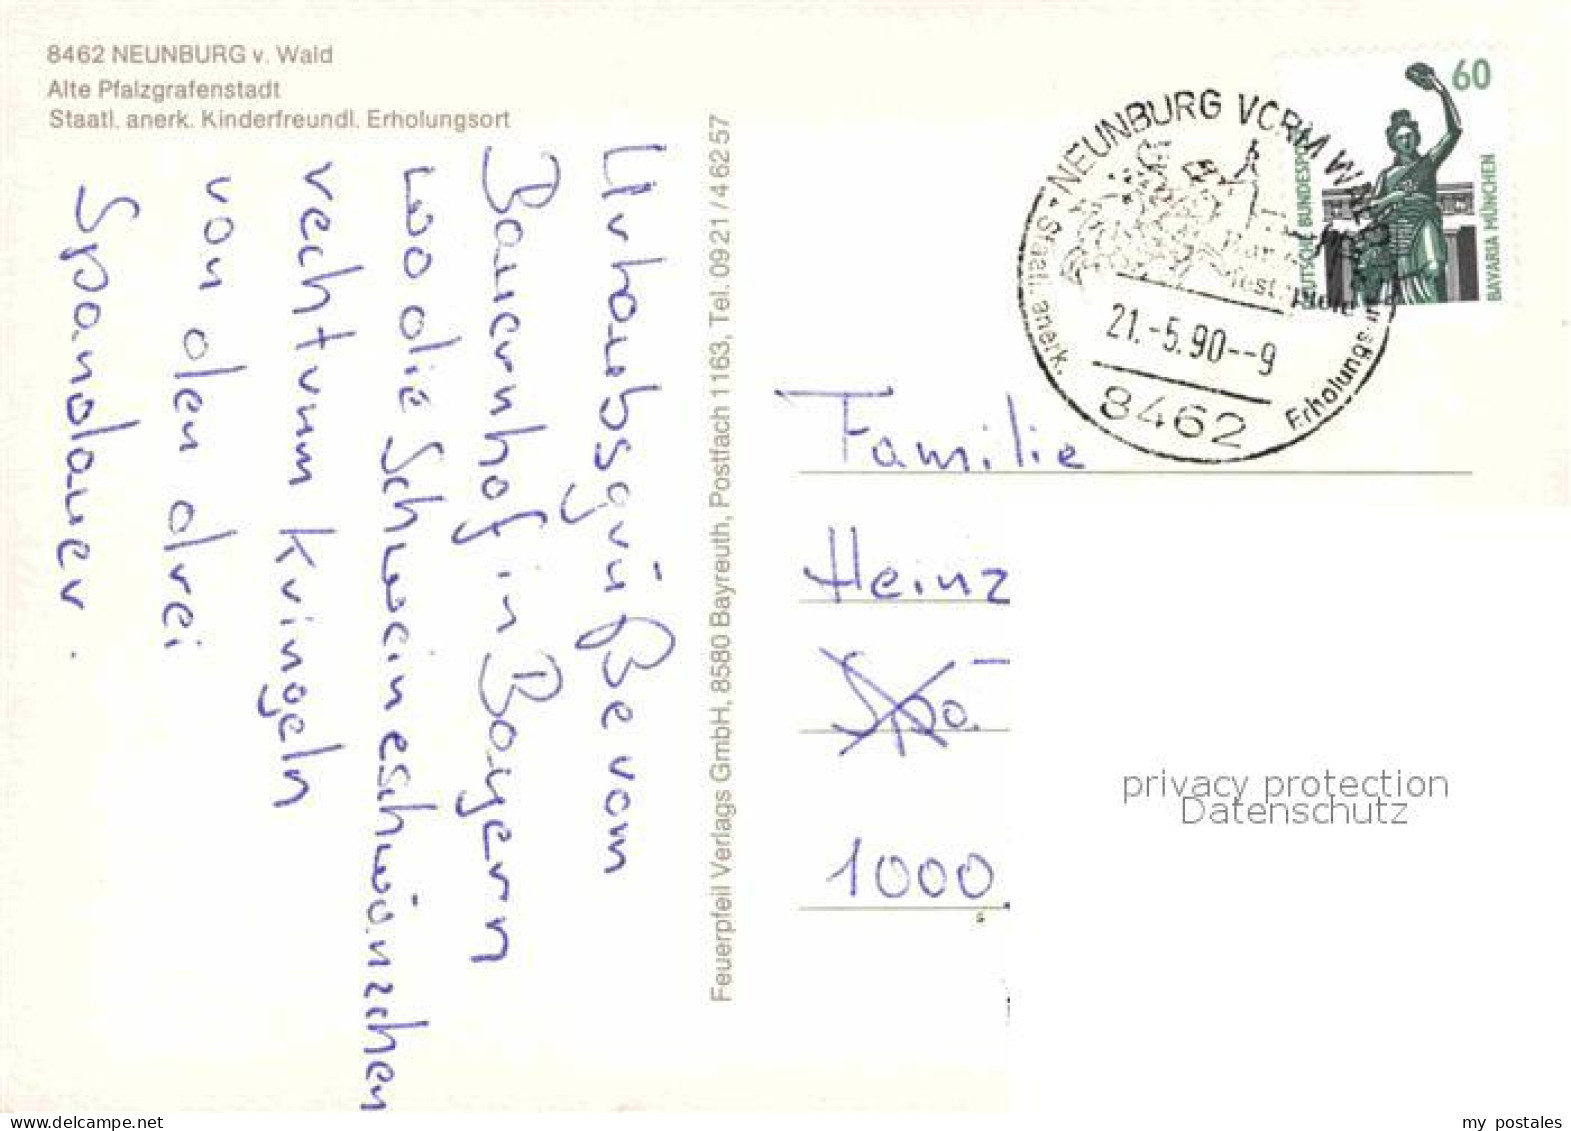 8462 NEUNBURG v. Wald
Alte Pfalzgrafenstadt
Staatl. anerk. Kinderfreundl. Erholungsort
Urlaubsgrüße vom
Bauernhof in Bayern
wo die Schweineschwänzchen
rechtrum kringeln
von den drei
Spandauer.
Feuerpfeil Verlags GmbH, 8580 Bayreuth, Postfach 1163, Tel. 09 21 / 4 62 57
60
DEUTSCHE BUNDESPOST
BAVARIA MÜNCHEN
NEUNBURG VORM WALD
Staatl. anerk.
Erholungsort
festspiele
21.-5.90--9
8462
Familie
Heinz
1000
privacy protection
Datenschutz
www.delcampe.net
my_postales